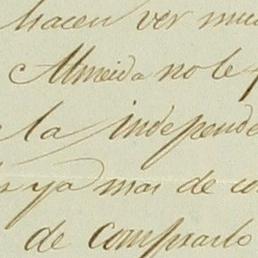 hacen ver mu
Almeida no le
la independe
ya mas de co
de comprarlo